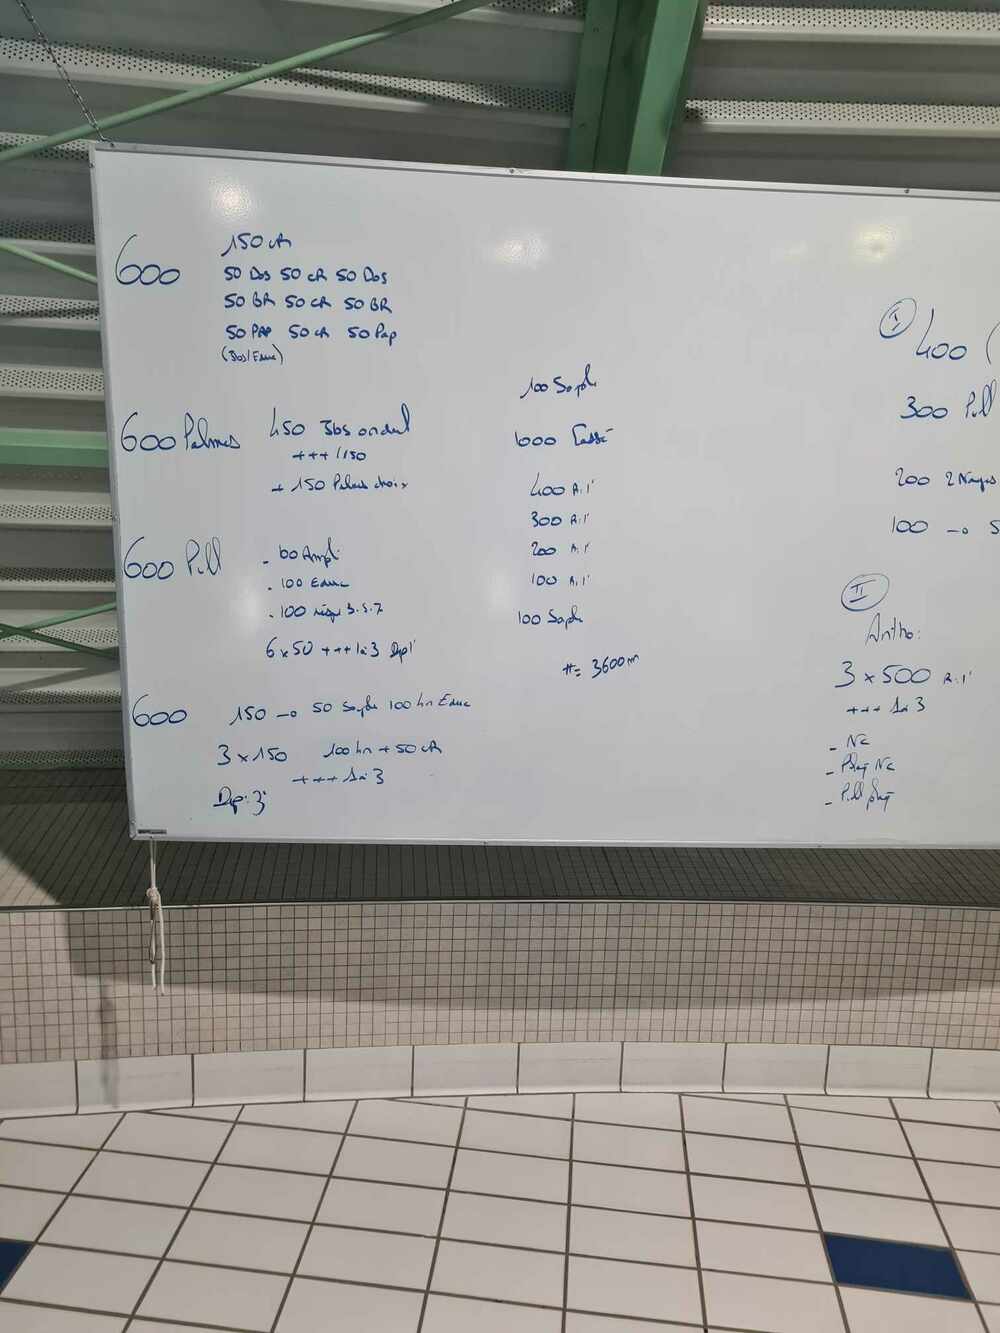 600
150 cR
50 Dos 50 cR 50 Dos
50 BR 50 cR 50 BR
50 PAP 50 cR 50 Pap
(Jbs/Educ)
600 Palmes
450 Jbs ondul
+++ /150
+ 150 Palmes choix
600 Pull
- 100 Ampli
- 100 Educ
- 100 3.5.7
6 x 50 +++ 1à3 Dep 1'
600
150 → 50 Souple 100 hn Educ
3 x 150 100 hn + 50 cR
+++ 1à3
Dep: 3'
100 Souple
1000 Cassé
400 R:1'
300 R:1'
200 R:1'
100 R:1'
100 Souple
#= 3600m
I
400 (
300 Pull
200 2 Nages
100 → S
II
Antho:
3 x 500 R:1'
+++ 1à3
- Nc
- Plaq Nc
- Pull plaq